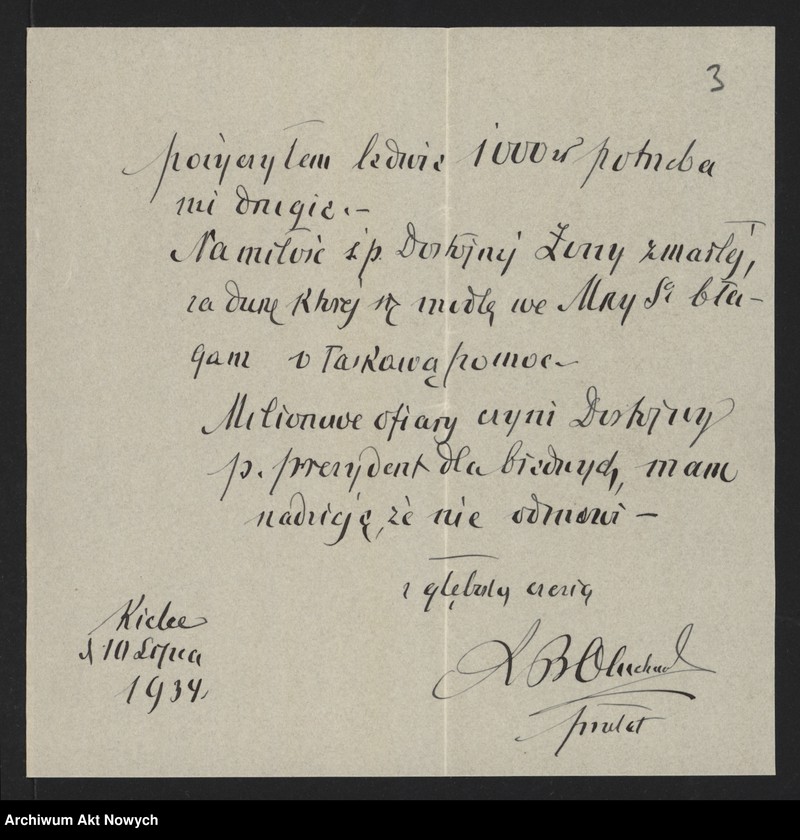 3
pożyczyłem ledwie 1000 zł potrzeba
mi drugie.-
Na miłość ś.p. Dostojnej Żony zmarłej,
za duszę której się modlę we Mszy Śtej bła-
gam o łaskawą pomoc.-
Milionowe ofiary czyni Dostojny
p. prezydent dla biednych, mam
nadzieję, że nie odmówi -
z głęboką czcią
Kielce
d 10 Lipca
1934.
X B
prałat
Archiwum Akt Nowych